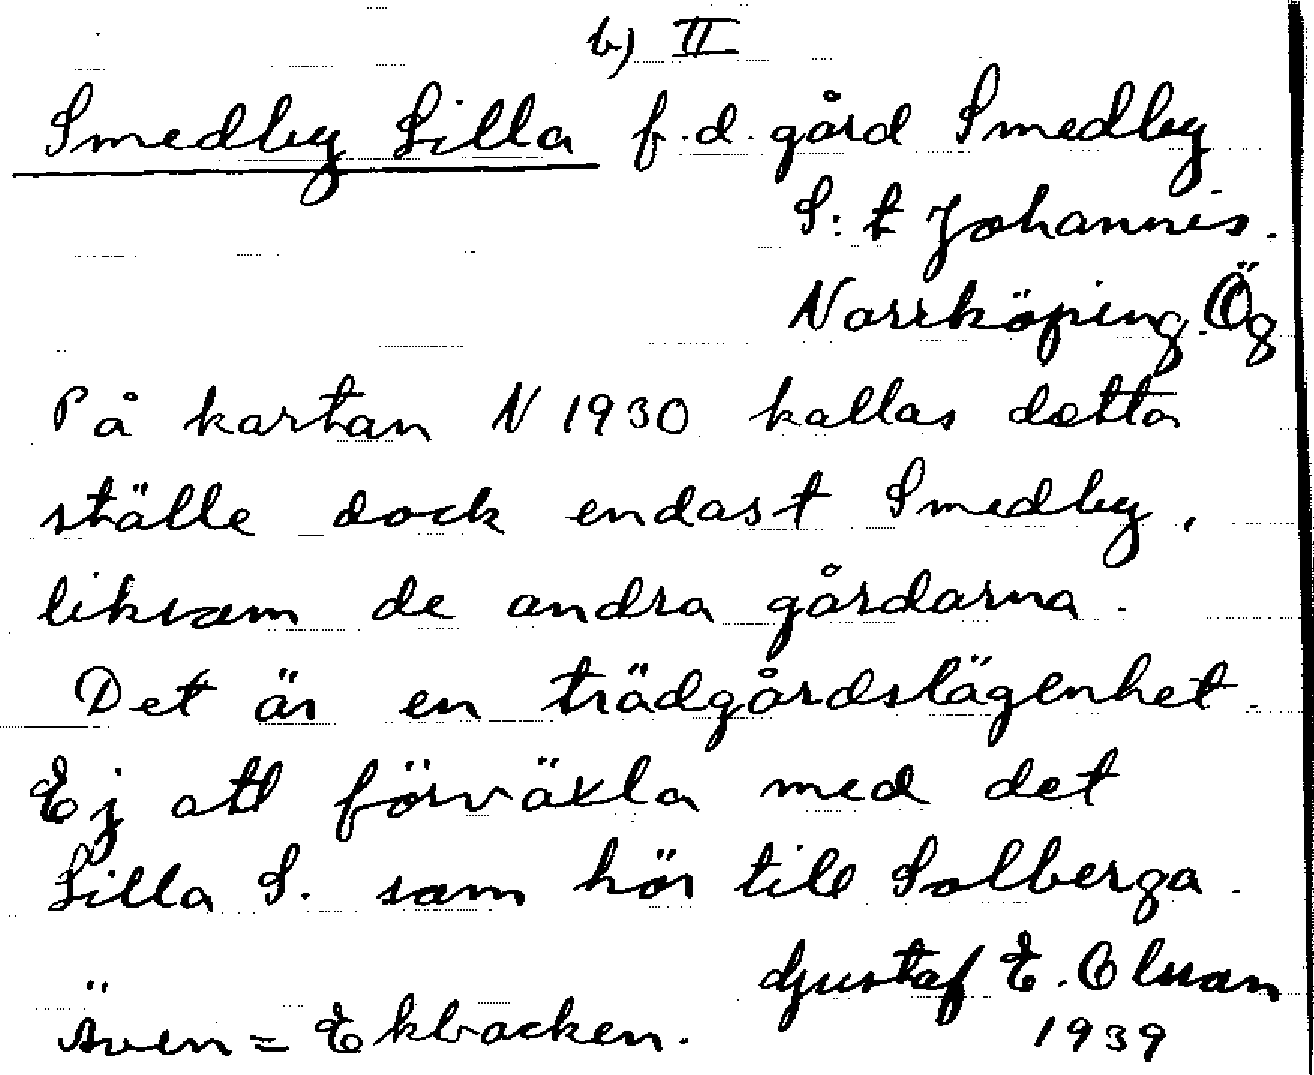 b) II
Smedby Lilla f.d. gård Smedby
S:t Johannis.
Norrköping. Ög
På kartan N 1930 kallas detta
ställe dock endast Smedby,
liksom de andra gårdarna.
Det är en trädgårdslägenhet.
Ej att förväxla med det
Lilla S. som hör till Solberga.
Gustaf E. Olsson
Även = Ekbacken.
1939